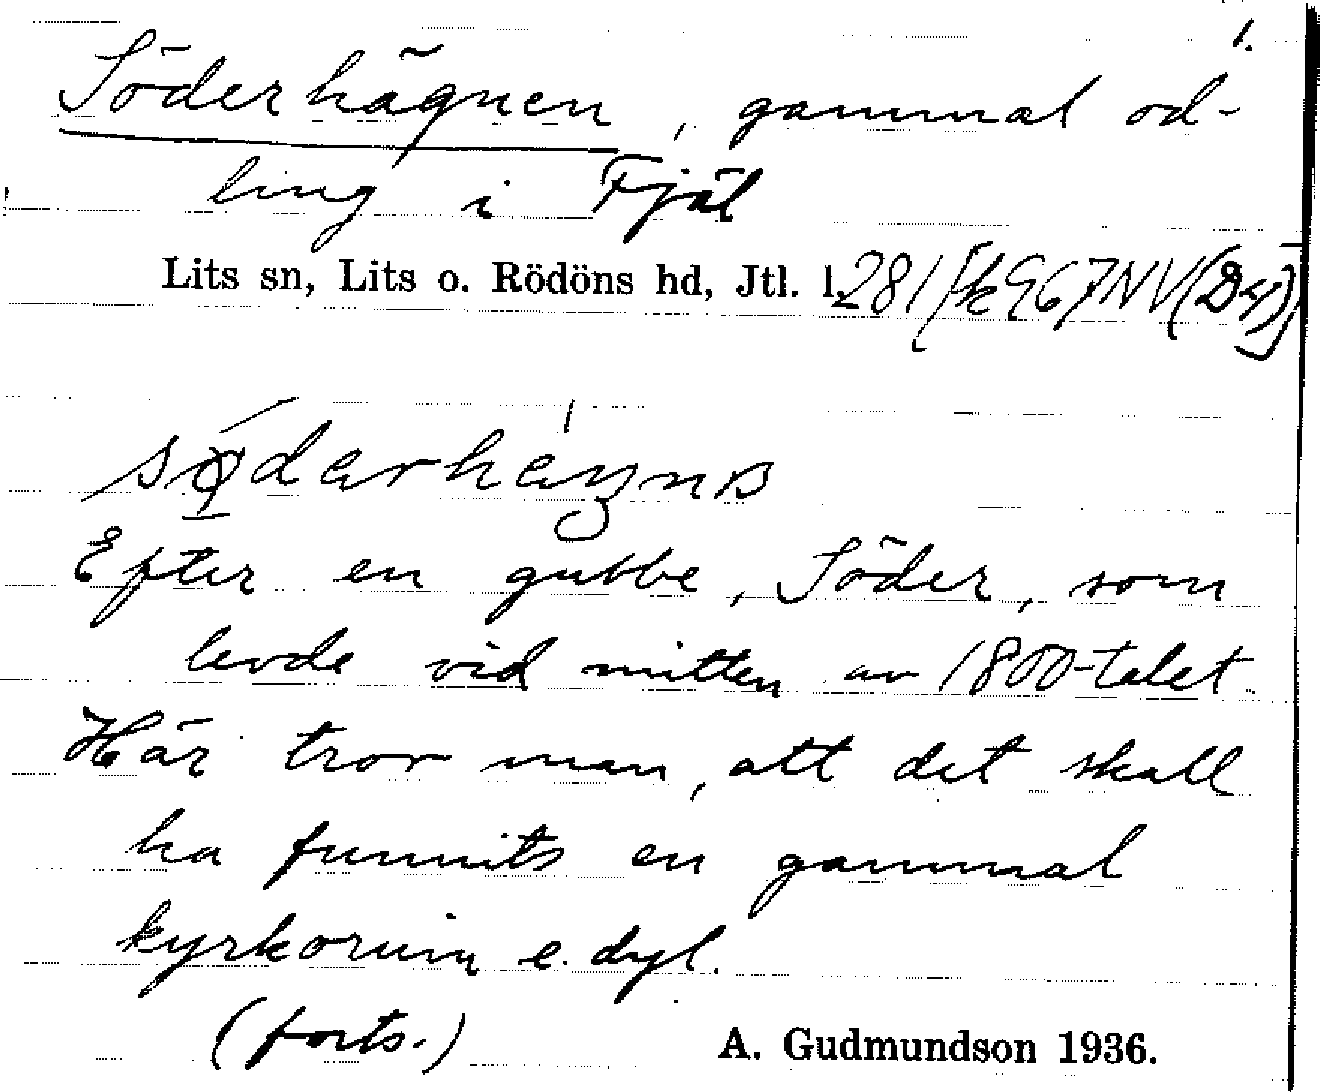 1.
Söderhägnen, gammal od-
ling i Fjäl
Lits sn, Lits o. Rödöns hd, Jtl. l.
Efter en gubbe, Söder, som
levde vid mitten av 1800-talet.
Här tror man, att det skall
ha funnits en gammal
kyrkoruin e. dyl.
(forts.)
A. Gudmundson 1936.